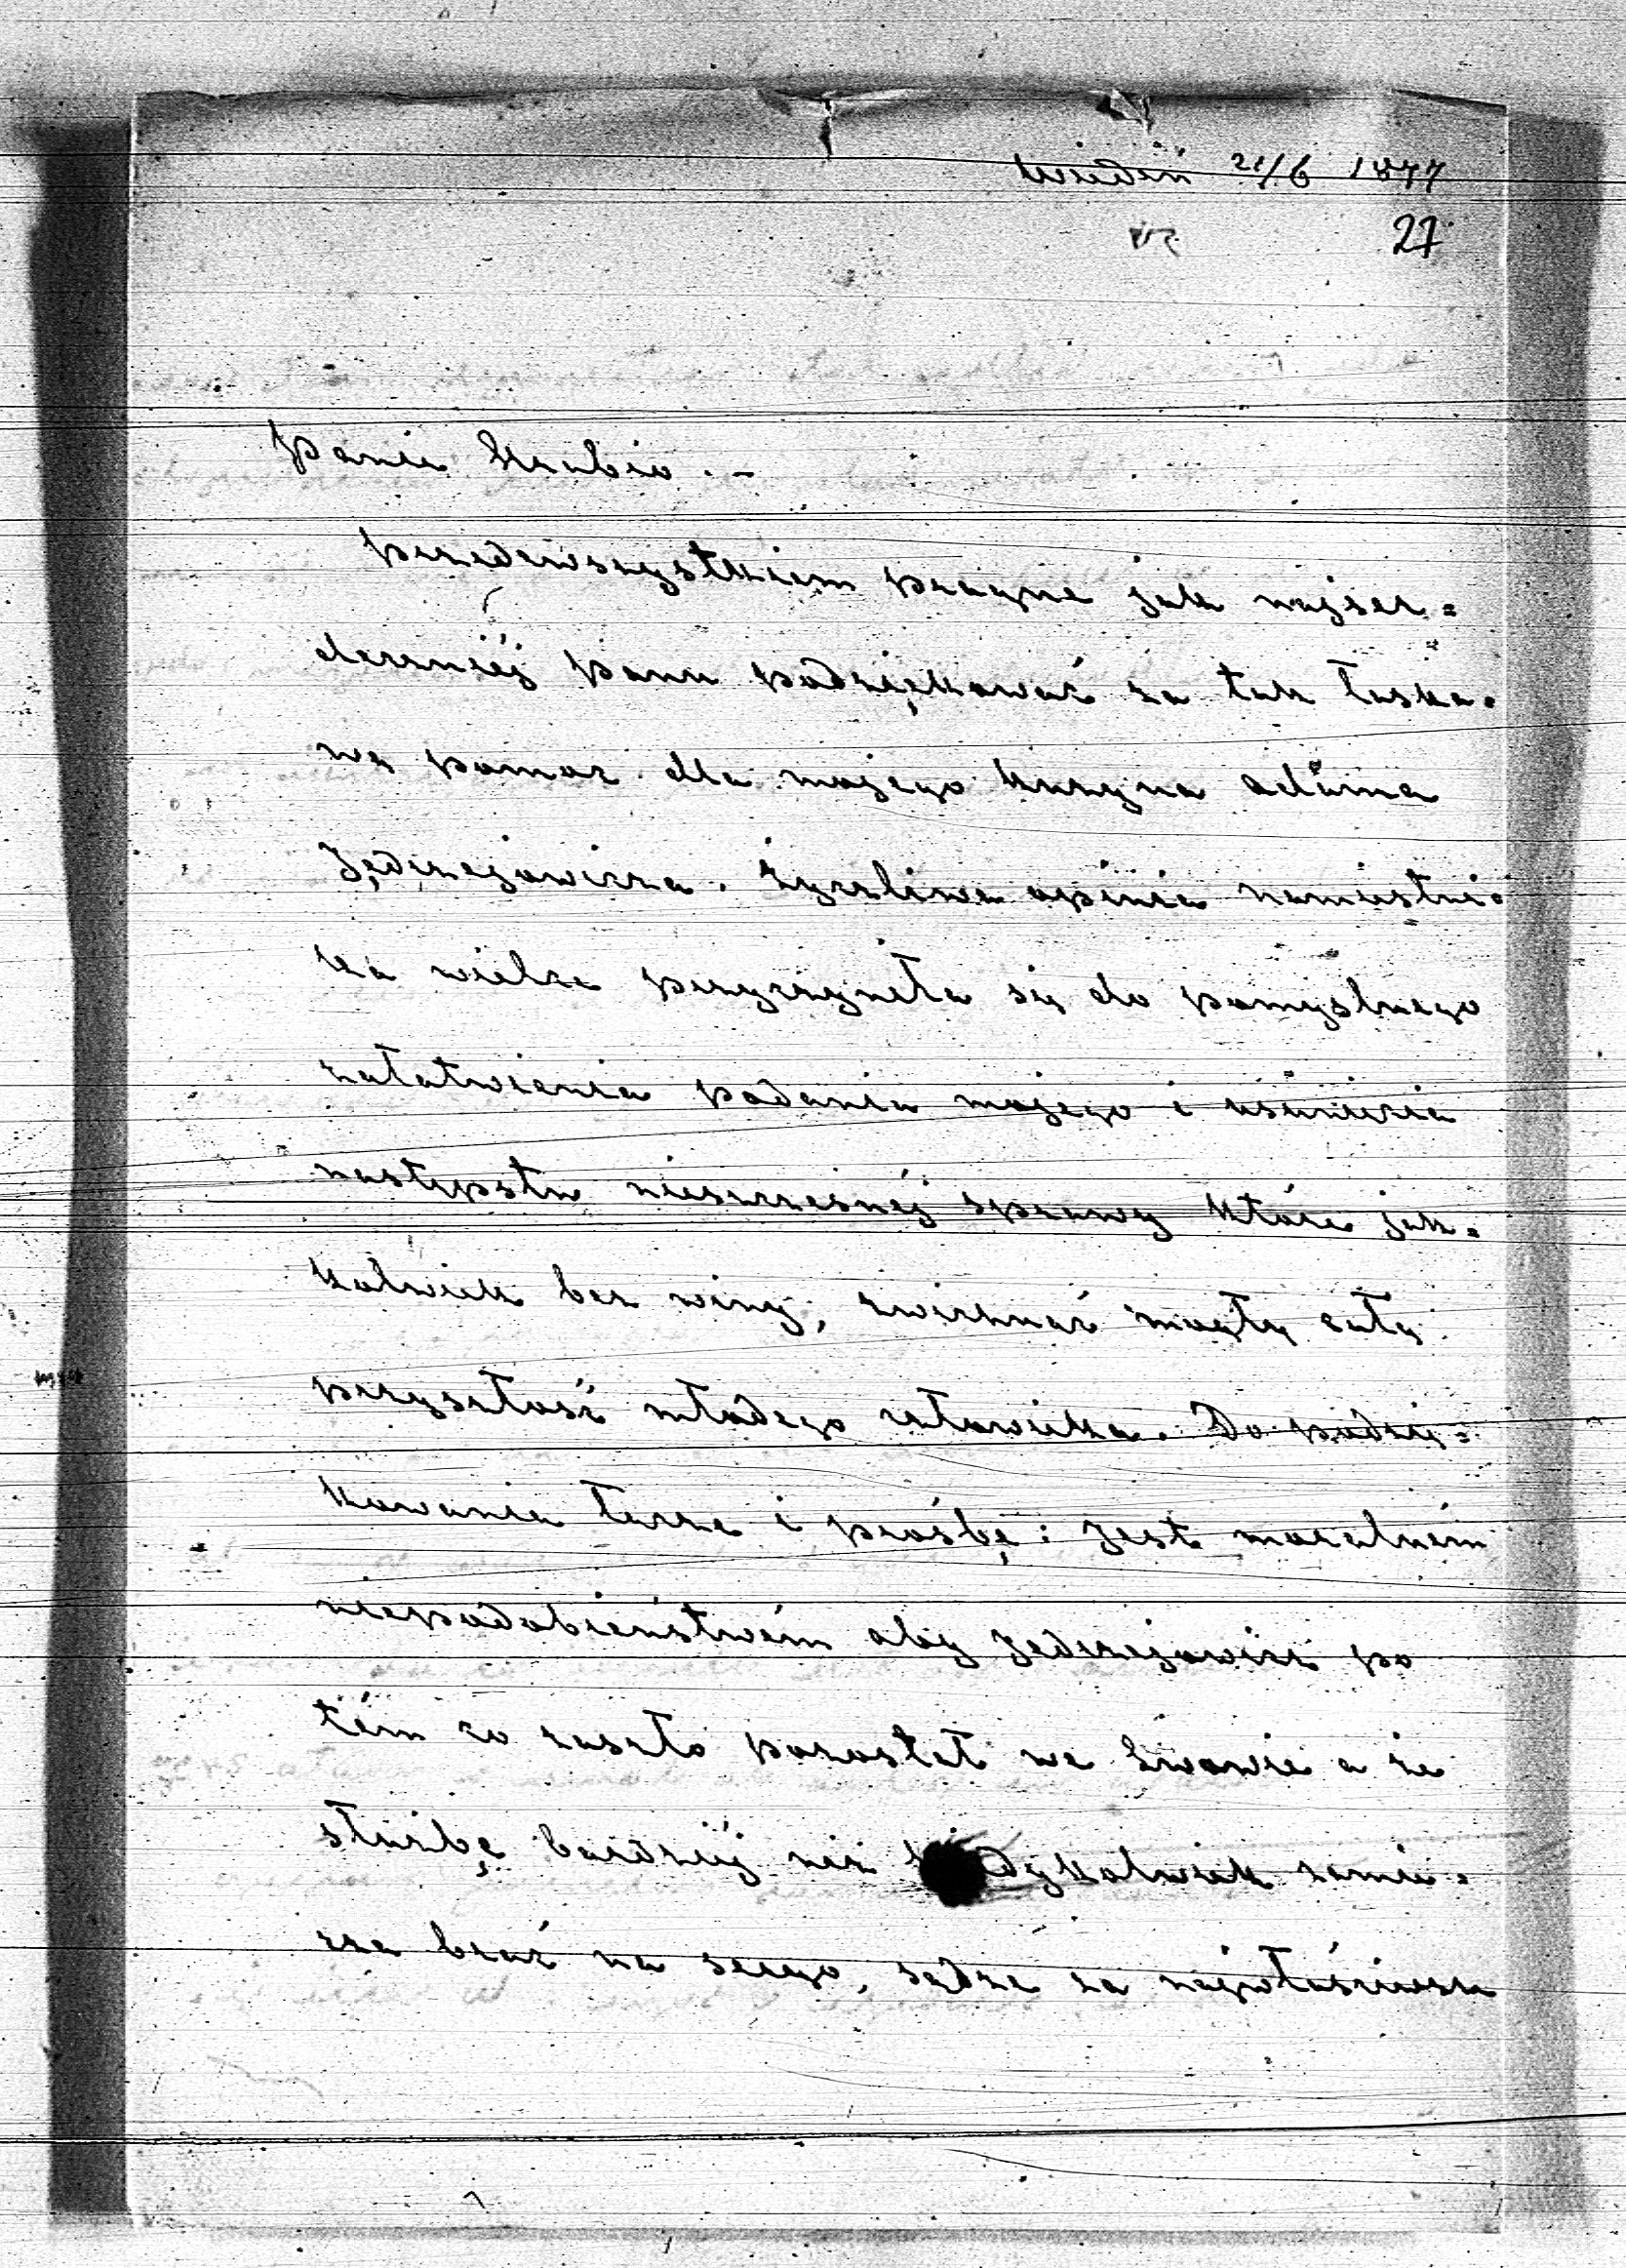 Wiedeń 21/6 1877
27
Panie Hrabio. –
Przedewszystkiem pragnę jak najser=
deczniéj panu podziękować za tak łaska=
wą pomoc dla mojego kuzyna Adama
Jędrzejowicza. Życzliwa opinia namiestni=
ka wielce przyczyneła się do pomyślnego
załatwienia podania mojego i usunięcia
następstw nieszczesnéj sprawy które jak=
kolwiek bez winy, zwichnąć mogły całą
przyszłość młodego człowieka. Do podzię=
kowania łączę i prośbę: Jest moralném
niepodobieństwem aby Jędrzejowicz po
tém co zaszło pozostał we Lwowie a że
służbę bardziéj niż kiedykolwiek zamie=
rza brać na seryo, sądzę za najwłaściwsze